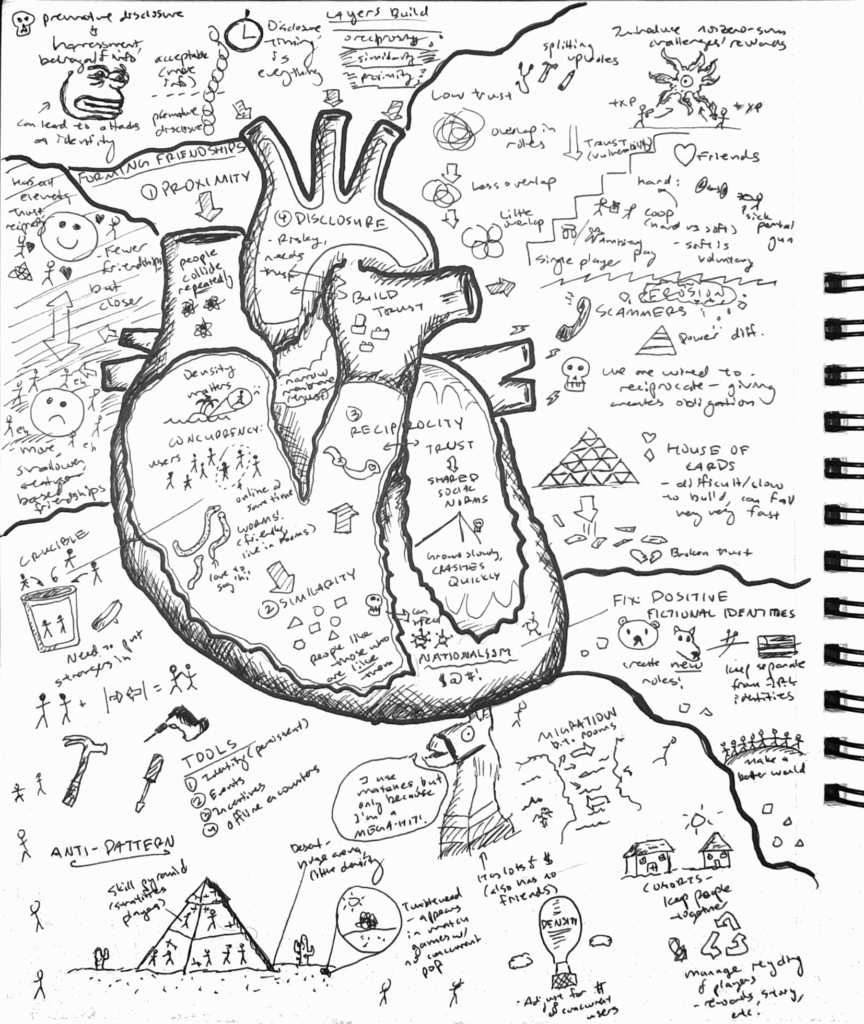 premature disclosure
↳ harassment,
betrayal of info,
can lead to attacks
on identity
acceptable
(more
info)
premature
disclosure
Disclosure
timing
is
everything
LAYERS BUILD
reciprocity
similarity
proximity
splitting
up roles
Introduce nonzero-sum
challenges/rewards
+XP
+XP
Low trust
overlap in
roles
Less overlap
Little
overlap
TRUST
(vulnerability)
Friends
hard:
coop
(hard vs soft)
- soft is
voluntary
single player
play
FORMING FRIENDSHIPS
① PROXIMITY
people
collide
repeatedly
④ DISCLOSURE
- Risky,
needs
trust
BUILD
TRUST
- Fewer
friendships
but
close
eh
eh
eh
more,
shallower,
based
friendships
Density
matters
CONCURRENCY:
users
online @
same time
WORMS!
(friendly,
live in rooms)
love to
say
hi
narrow
(trust)
③
RECIPROCITY
TRUST
SHARED
SOCIAL
NORMS
Grows slowly,
CRASHES
QUICKLY
② SIMILARITY
people like
those who
are like
them
can
NATIONALISM
$@#!
EROSION
SCAMMERS
Power diff.
we are wired to
reciprocate - giving
creates obligation
HOUSE OF
CARDS
- difficult/slow
to build, can fall
very very fast
Broken trust
FIX: POSITIVE
FICTIONAL IDENTITIES
create new
roles!
keep separate
from
identities
make a
better world
CRUCIBLE
Need to put
strangers in
TOOLS
① Identity (persistent)
② Events
③ Incentives
④ Offline encounters
I use
matches, but
only because
I'm a
MEGA-HIT!
MIGRATION
b.t. rooms
It has lots of $
(also has no
friends)
ANTI-PATTERN
Skill pyramid
(stratifies
players)
Desert -
huge area,
little density
Tumbleweed
- appears
in match
games w/
no concurrent
pop
DENSITY
- Adjust for #
of concurrent
users
COHORTS -
keep people
together
manage recycling
of players
- rewards, story,
etc.